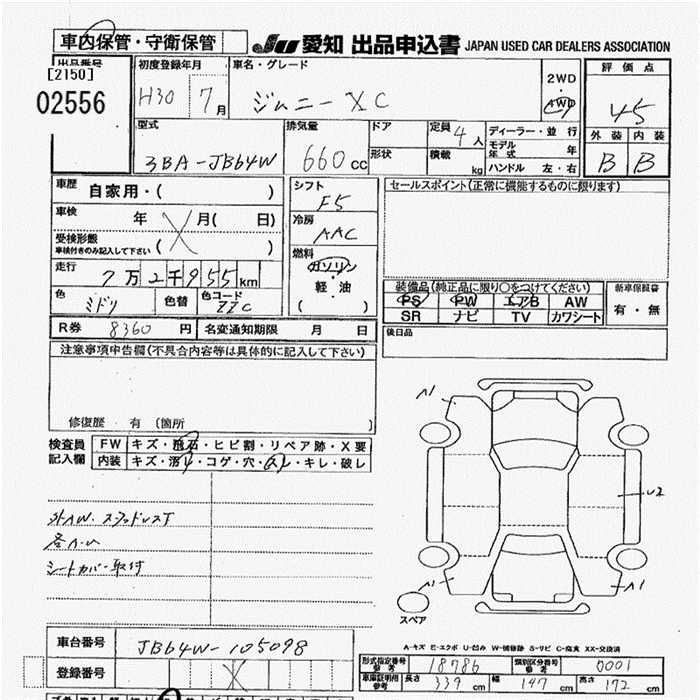 車内保管・守衛保管 JU 愛知 出品申込書 JAPAN USED CAR DEALERS ASSOCIATION
出品番号 初度登録年月 車名・グレード 2WD 評価点
[2150]
02556 H30 7月 ジムニー XC 4WD 4.5
型式 排気量 ドア 定員 4人 ディーラー・並行 外装 内装
モデル年式 年
3BA-JB64W 660cc 形状 積載 kg ハンドル 左・右 B B
車歴 自家用・( ) シフト F5 セールスポイント(正常に機能するものに限ります)
車検 年 X 月( 日) 冷房 AAC
受検形態
車検付きのみ記入して下さい ( ) 燃料
走行 7万2千955km ガソリン
軽・油
( )
装備品(純正品に限り○をつけてください) 新車保証書
色 ミドリ 色替 色コード ZZC PS PW エアB AW 有・無
SR ナビ TV カワシート
R券 8360円 名変通知期限 月 日 後日品
注意事項申告欄(不具合内容等は具体的に記入して下さい)
修復歴 有 (箇所 )
検査員 FW キズ・飛石・ヒビ割・リペア跡・X要
記入欄 内装 キズ・汚れ・コゲ・穴・スレ・キレ・破レ
A1
U2
外AW・スタッドレスT
各A・U
シートカバー取付
A1 A1
スペア
A-キズ E-エクボ U-凹み W-補修跡 S-サビ C-腐食 XX-交換済
車台番号 JB64W-105098
登録番号 X
形式指定番号 参考 18786 類別区分番号 参考 0001
車庫証明用 参考 長さ 339cm 幅 147cm 高さ 172cm